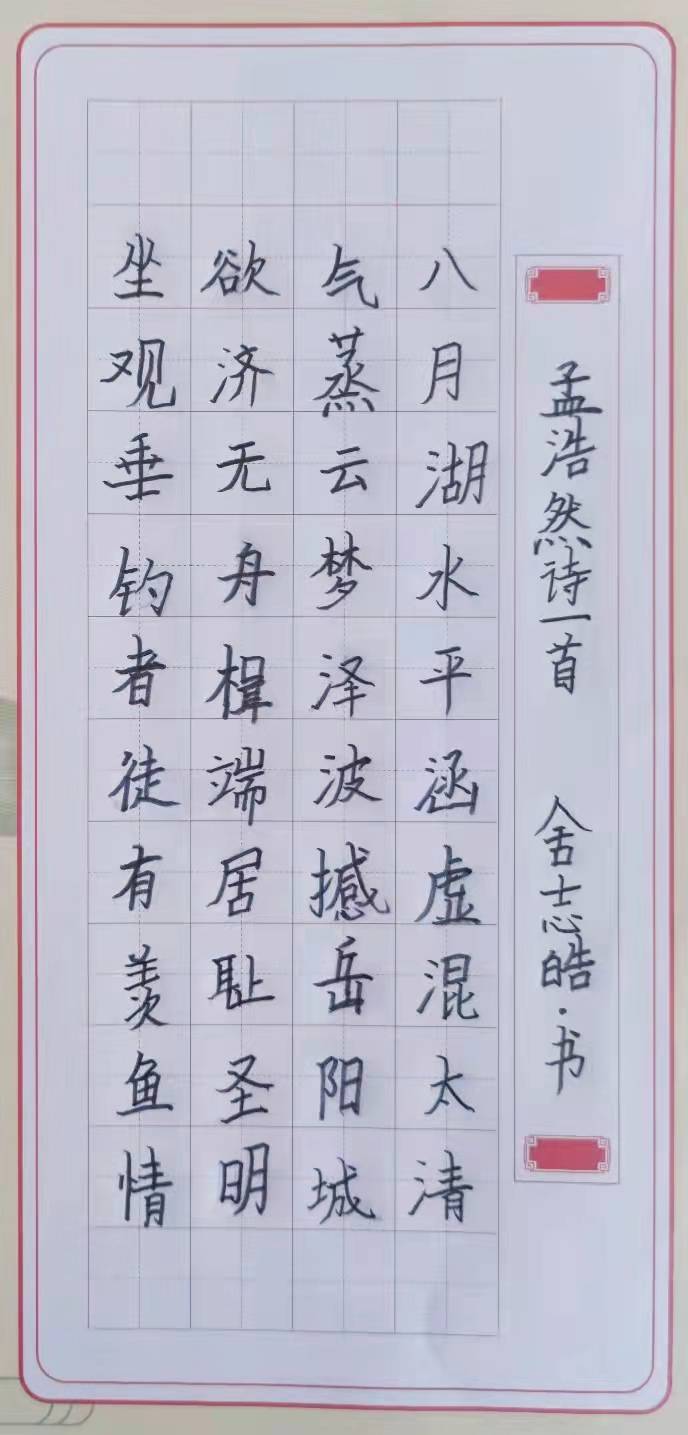 孟浩然诗一首 舍志皓·书
八月湖水平涵虚混太清
气蒸云梦泽波撼岳阳城
欲济无舟楫端居耻圣明
坐观垂钓者徒有羡鱼情